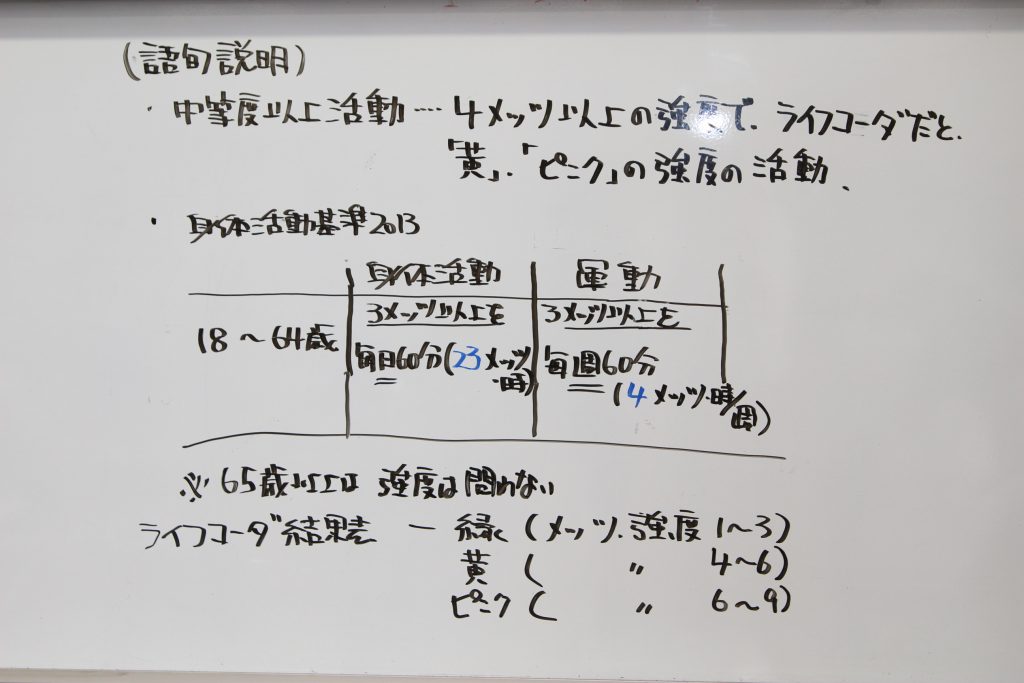 (語句説明)
・中等度以上活動‥‥4メッツ以上の強度で、ライフコーダだと、
「黄」、「ピンク」の強度の活動、
・身体活動基準2013
身体活動 運動
18〜64歳 3メッツ以上を 3メッツ以上を
毎日60分(23メッツ・時) 毎週60分
(4メッツ・時/週)
※65歳以上は強度は問わない
ライフコーダ結果 ー 緑(メッツ、強度 1〜3)
黄( 〃 4〜6)
ピンク( 〃 6〜9)